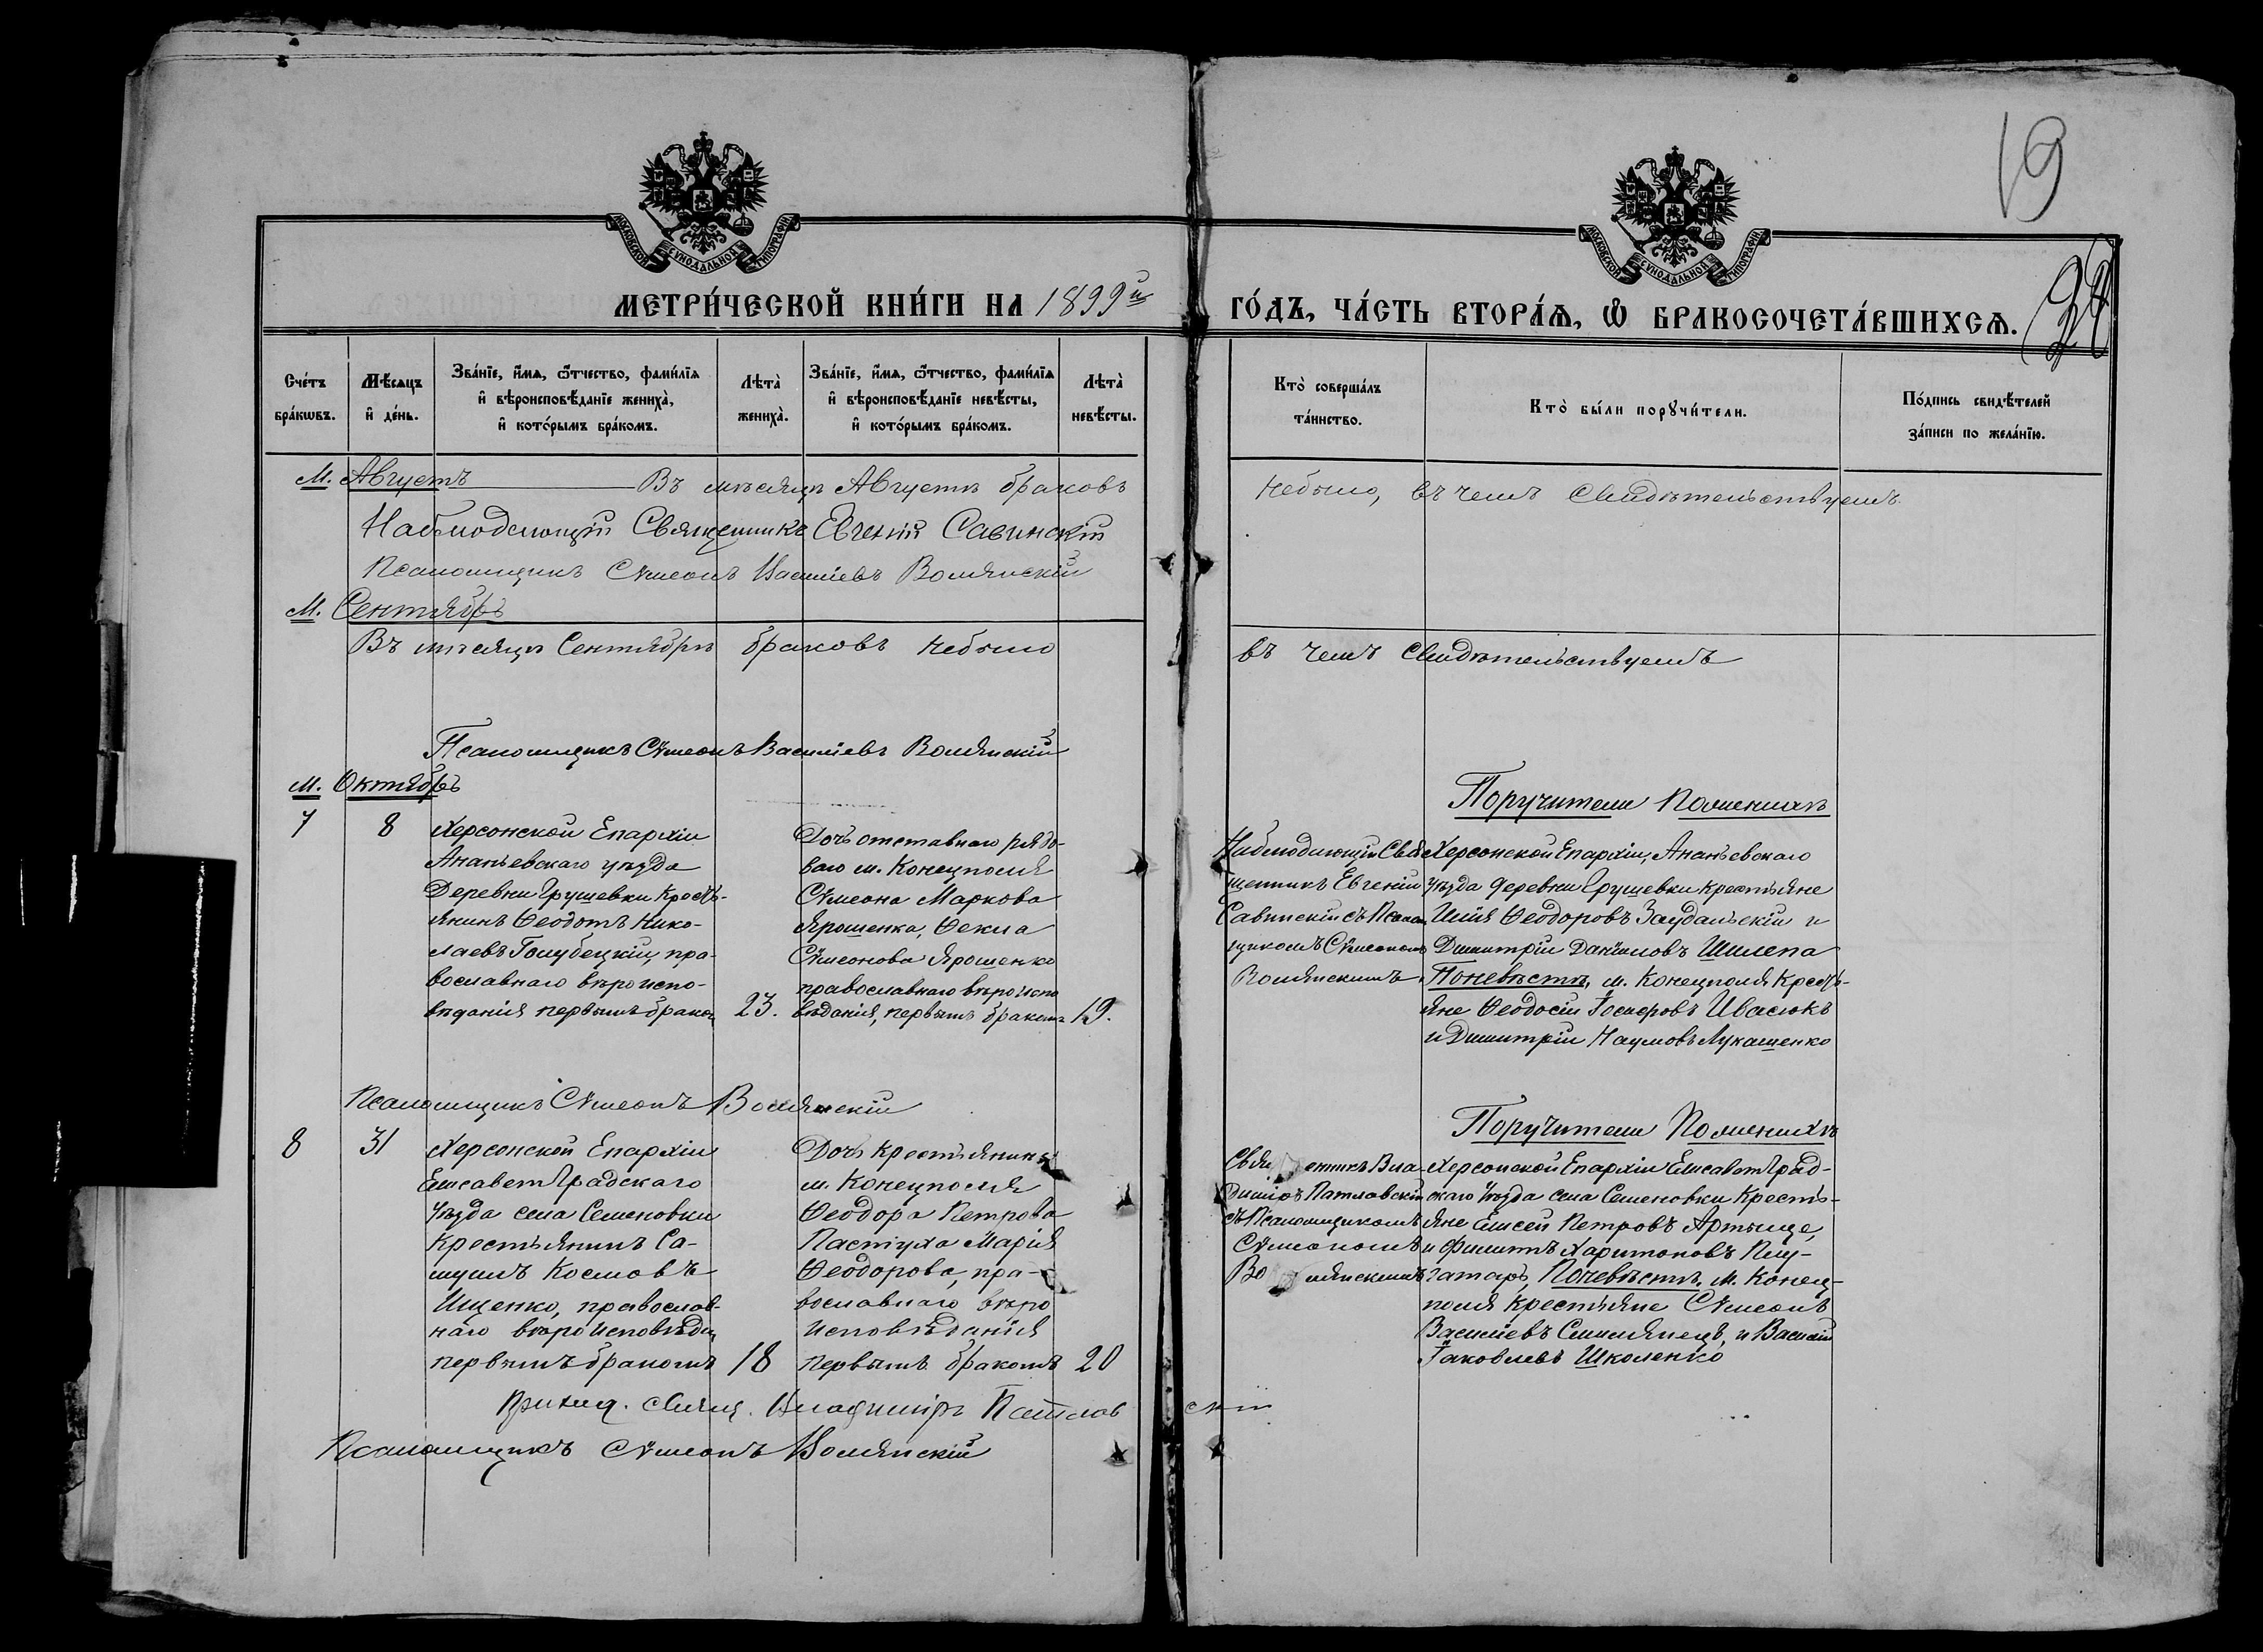 19
24
МОСКОВСКОЙ СѴНОДАЛЬНОЙ ТИПОГРАФІИ
МОСКОВСКОЙ СѴНОДАЛЬНОЙ ТИПОГРАФІИ
МЕТРИ́ЧЕСКОЙ КНИ́ГИ НА 1899й ГО́ДЪ, ЧА́СТЬ ВТОРА́Ѧ, Ѽ БРАКОСОЧЕТА́ВШИХСѦ.
Сче́тъ
бра́кѡвъ.
Мѣ́сѧцъ
и҆ де́нь.
Зва́нїе, и҆́мѧ, ѻ҆́тчество, фами́лїѧ
и҆ вѣроисповѣ́данїе жениха̀,
и҆ кото́рымъ бра́комъ.
Лѣта̀
жениха̀.
Зва́нїе, и҆́мѧ, ѻ҆́тчество, фами́лїѧ
и҆ вѣроисповѣ́данїе невѣ́сты,
и҆ кото́рымъ бра́комъ.
Лѣта̀
невѣ́сты.
Кто̀ соверша́лъ
та́инство.
Кто̀ бы́ли порꙋчи́тели.
По́дпись свидѣ́телей
за́писи по жела́нїю.
М. Августъ
Въ мѣсяцѣ Августѣ браковъ небыло, въ чемъ свидѣтельствуемъ
Наблюдающій Священникъ Евгеній Савинскій
Псаломщикъ Сѵмеонъ Василіевъ Волянскій
М. Сентябрь
Въ мѣсяцѣ Сентябрѣ браковъ небыло въ чемъ свидѣтельствуемъ
Псаломщикъ Сѵмеонъ Василіевъ Волянскій
М. Октябрь
7
8
Херсонской Епархіи
Ананьевскаго уѣзда
Деревни Грушевки Кресть-
янинъ Ѳеодотъ Нико-
лаевъ Голубецкій, пра-
вославнаго вѣроиспо-
вѣданія первымъ брако
23.
Дочь отставнаго рядо-
ваго м. Конецполя
Сѵмеона Маркова
Ярошенка, Ѳекла
Сѵмеонова Ярошенко
православнаго вѣроиспо
вѣданія, первымъ бракомъ
19.
Наблюдающій Свя
щенникъ Евгеній
Савинскій съ Псалом
щикомъ Сѵмеономъ
Волянскимъ.
Поручители Поженихѣ
Херсонской Епархіи, Ананьевскаго
уѣзда деревни Грушевки крестьяне
Илія Ѳеодоровъ Заудальскій и
Димитрій Даніиловъ Шилепа
Поневѣстѣ, м. Конецполя Кресть-
яне Ѳеодосій Іосифовъ Ивасюкъ
и Димитрій Наумовъ Лукашенко
Псаломщикъ Сѵмеонъ Волянскій
8
31
Херсонской Епархіи
Елисаветградскаго
уѣзда села Семеновки
Крестьянинъ Са-
муилъ Космовъ
Ищенко, православ-
наго вѣроисповѣдан
первымъ бракомъ
18
Дочь крестьянина
м. Конецполя
Ѳеодора Петрова
Пастуха Марія
Ѳеодорова, пра-
вославнаго вѣро
исповѣданія
первымъ бракомъ
20
Священникъ Вла-
диміръ Патлавскій
съ Псаломщикомъ
Сѵмеономъ
Волянскимъ
Поручители Поженихѣ
Херсонской Епархіи Елисаветград-
скаго уѣзда села Семеновки Кресть-
яне Елисей Петровъ Артыще,
и Филиппъ Харитоновъ Плу-
гатарь, Поневѣстѣ, м. Конец-
поля крестьяне Сѵмеонъ
Василіевъ Смилянецъ, и Василій
Іаковлевъ Школенко
Приход. Свящ. Владиміръ Патлавскій
Псаломщикъ Сѵмеонъ Волянскій